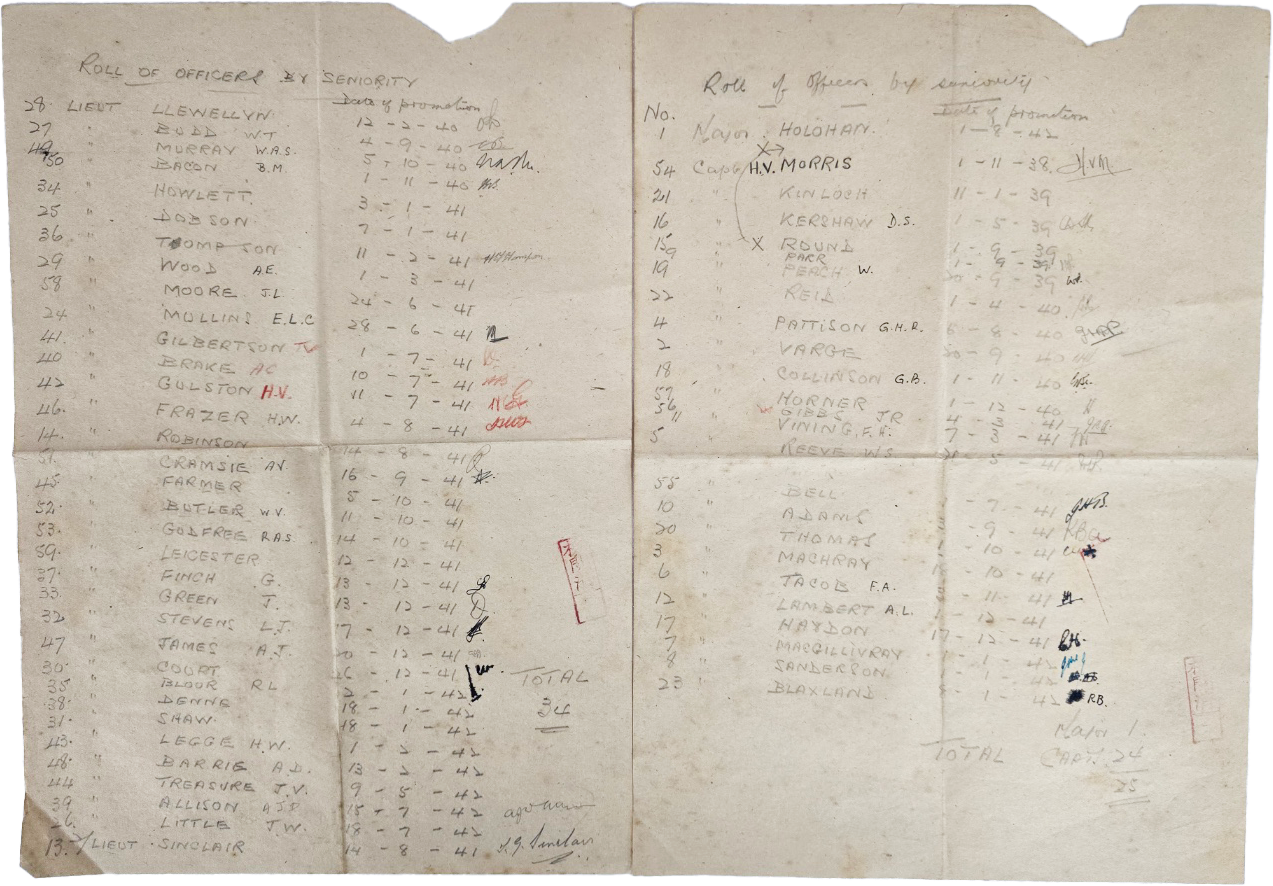 ROLL OF OFFICERS BY SENIORITY
Date of promotion
28 LIEUT LLEWELLYN 12 - 2 - 40
27 " BUDD W T 4 - 9 - 40
49 " MURRAY W.A.S. 5 - 10 - 40
50 " BACON B.M 1 - 11 - 40
34 " HOWLETT 3 - 1 - 41
25 " DOBSON 7 - 1 - 41
36 " THOMPSON 11 - 2 - 41
29 " WOOD A.E. 1 - 3 - 41
58 " MOORE J.L 24 - 6 - 41
24 " MULLINS E.L.C 28 - 6 - 41
41. " GILBERTSON 1 - 7 - 41
40 " BRAKE AC 10 - 7 - 41
42 " GULSTON H.V. 11 - 7 - 41
46. " FRAZER H.W. 4 - 8 - 41
14. " ROBINSON 14 - 8 - 41
51. " CRAMSIE AV. 16 - 9 - 41
45 " FARMER 5 - 10 - 41
52. " BUTLER W V. 11 - 10 - 41
53. " GODFREE R.A.S. 14 - 10 - 41
59. " LEICESTER 12 - 12 - 41
37. " FINCH G. 13 - 12 - 41
33. " GREEN J. 13 - 12 - 41
32. " STEVENS L.J. 17 - 12 - 41
47 " JAMES A.J. 20 - 12 - 41
30. " COURT 26 - 12 - 41
35 " BLOOR R L 2 - 1 - 42
38. " DENNE 18 - 1 - 42
31. " SHAW 18 - 1 - 42
43. " LEGGE H.W. 1 - 2 - 42
48. " BARRIE A.D. 13 - 2 - 42
44 " TREASURE J.V. 9 - 5 - 42
39 " ALLISON A J D 15 - 7 - 42
26. " LITTLE J.W. 18 - 7 - 42
13. 2/LIEUT SINCLAIR 14 - 8 - 41 Sinclair
TOTAL
34
Roll of Officers by seniority
No. Date of promotion
1 Major HOLOHAN. 1 - 8 - 42
54 Capt H.V. MORRIS 1 - 11 - 38. H.V.M
21 " KINLOCH 11 - 1 - 39
16 " KERSHAW D.S. 1 - 5 - 39
15 " X ROUND 1 - 9 - 39
9 PARR 1 - 9 - 39
19 " PEACH W. 20 - 9 - 39
22 " REID 1 - 4 - 40
4 " PATTISON G.H.R. 6 - 8 - 40 GHRP
2 " VARGE 20 - 9 - 40
18 " COLLINSON G.B. 1 - 11 - 40
57 " HORNER 1 - 12 - 40
56 " GIBBS JR 4 - 3 - 41
11 " VINING, F.H. 7 - 3 - 41
5 " REEVE W S. - 5 - 41
55 " BELL - 7 - 41 GHB.
10 " ADAMS - 9 - 41
20 " THOMAS - 10 - 41
3 " MACHRAY - 10 - 41
6 " JACOB F.A. - 11 - 41
12 " LAMBERT A.L. - 12 - 41
17 " HAYDON 17 - 12 - 41
7 " MACGILLIVRAY - 1 - 42
8 " SANDERSON
23 " BLAXLAND - 1 - 42 RB.
Major 1.
TOTAL CAPT. 24
25